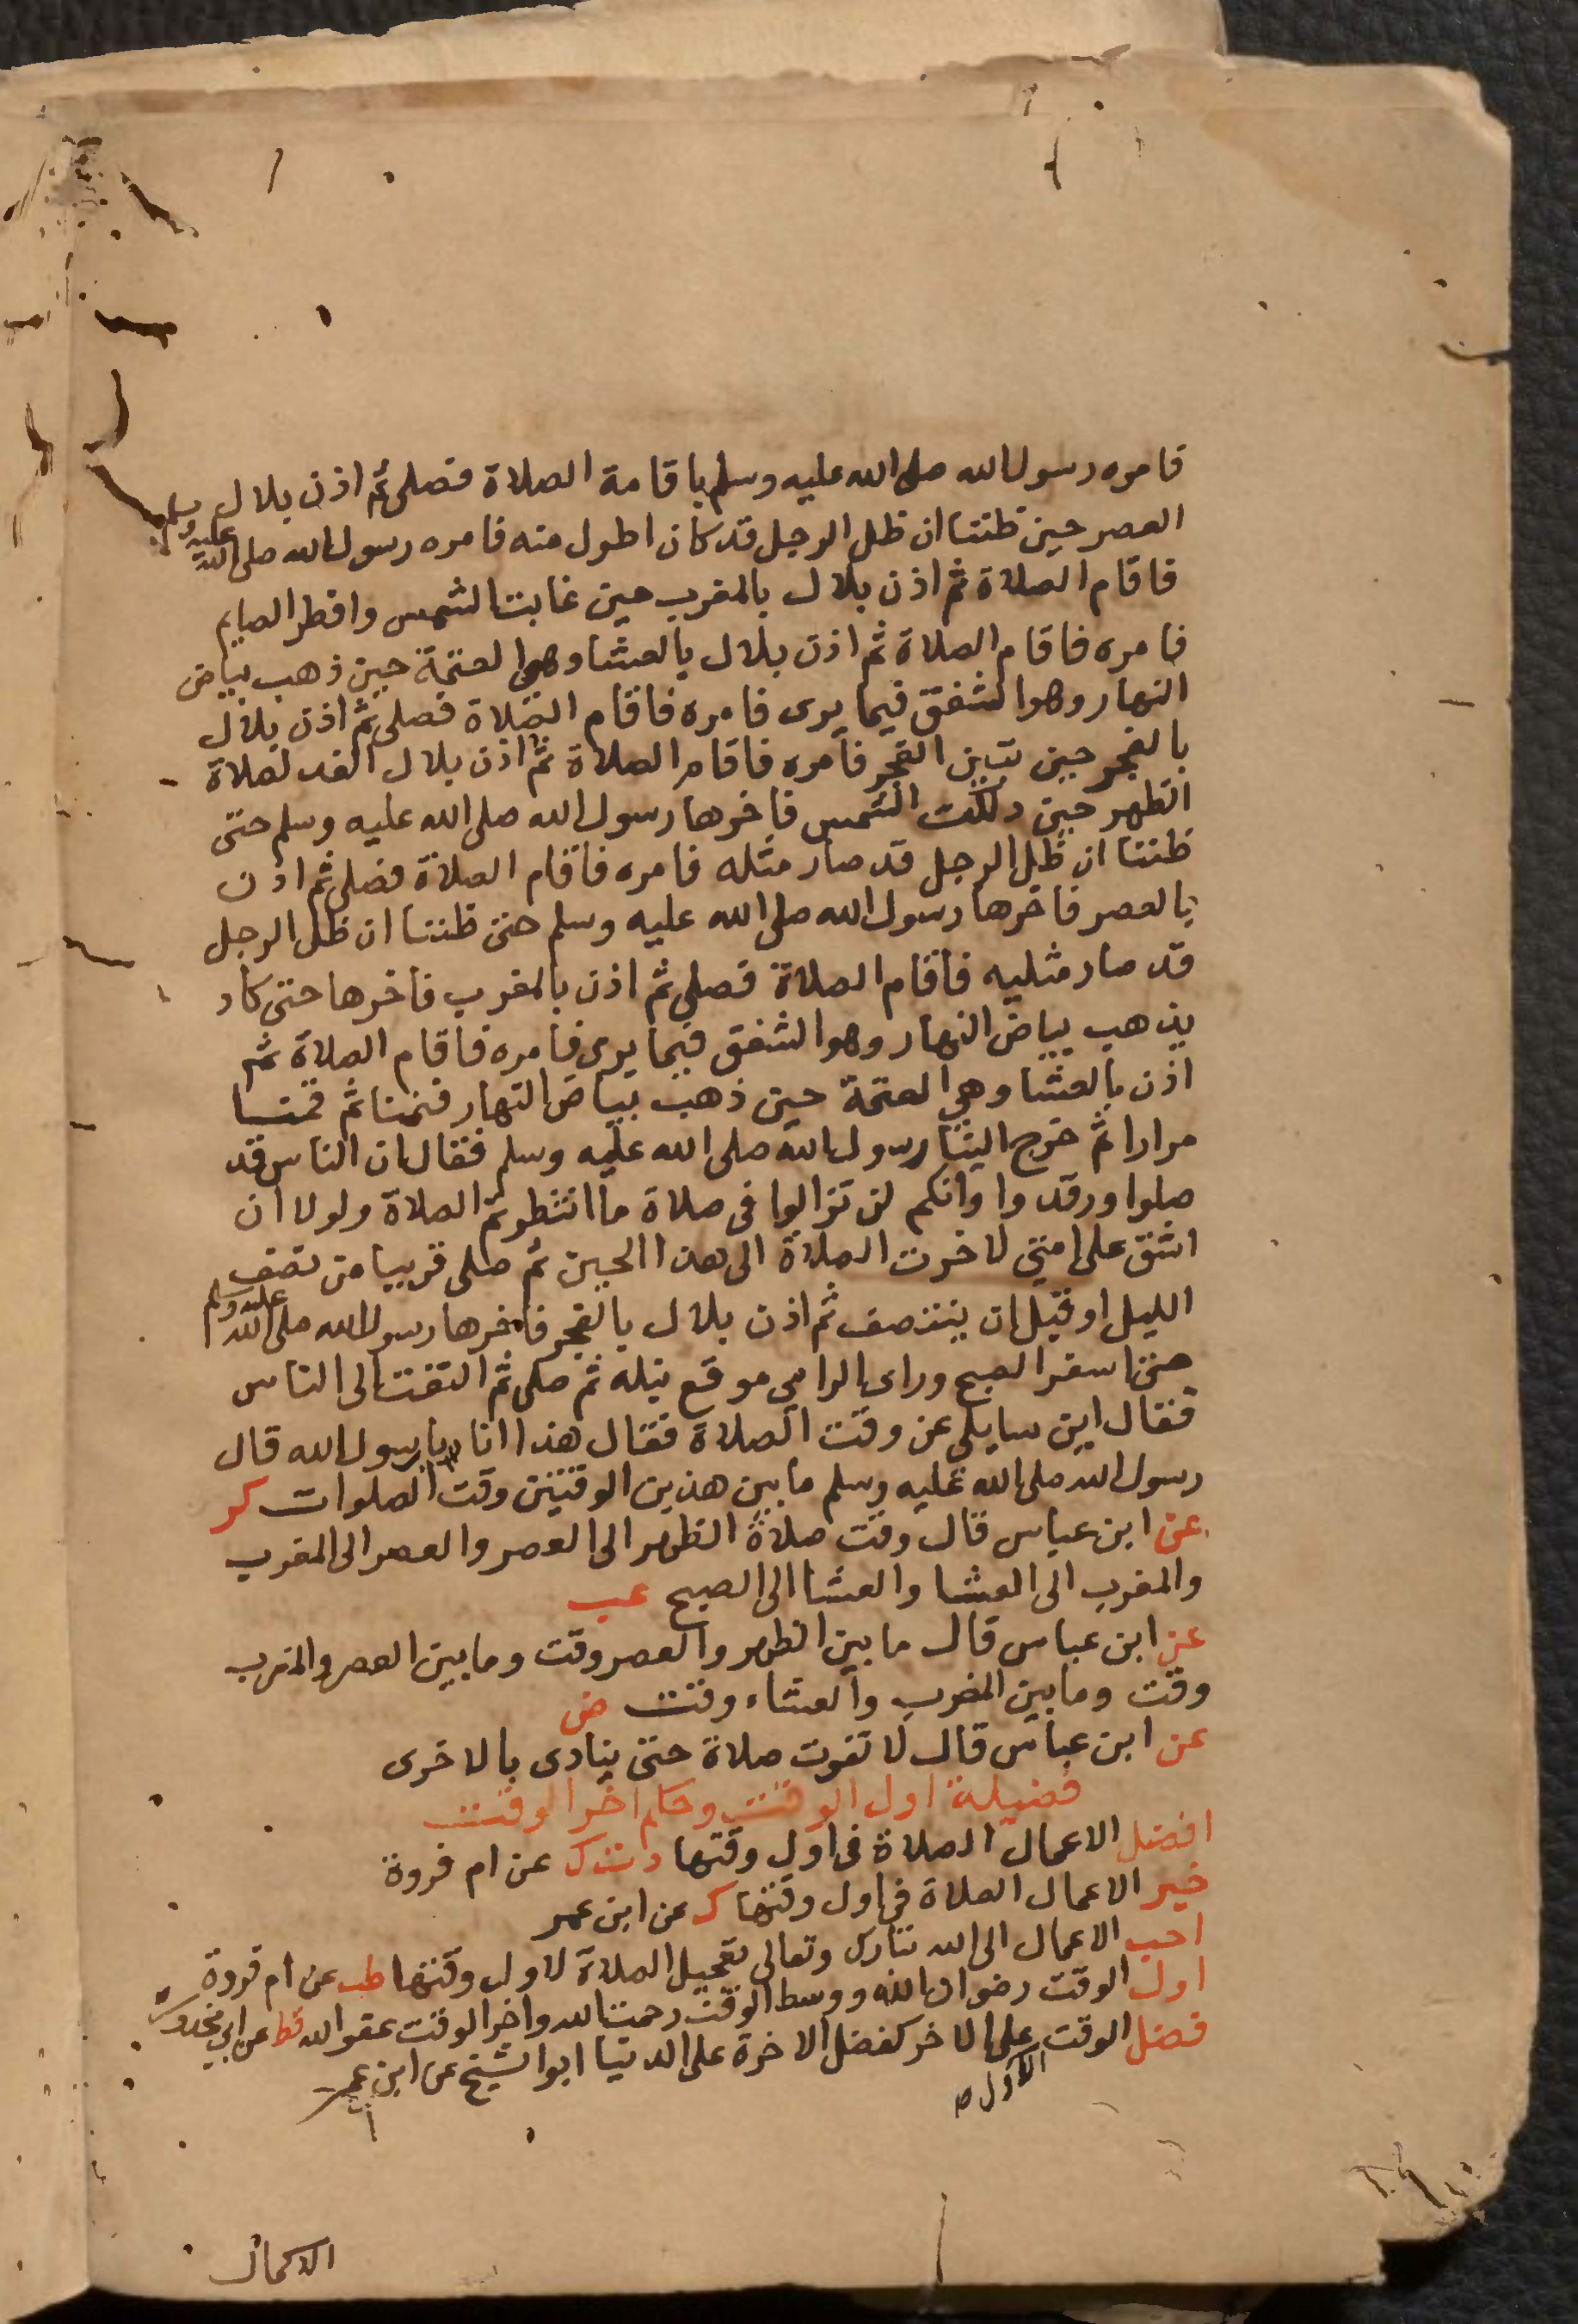 فامره رسول الله صلى الله عليه وسلم باقامة الصلاة فصلى ثم اذن بلال
العصر حين ظننا ان ظل الرجل قد كان اطول منه فامره رسول الله صلى الله عليه وسلم
فاقام الصلاة ثم اذن بلال بالمغرب حين غابت الشمس وافطر الصايم
فامره فاقام الصلاة ثم اذن بلال بالعشا وهى العتمة حين ذهب بياض
النهار وهو الشفق فيما يرى فامره فاقام الصلاة فصلى ثم اذن بلال
بالفجر حين تبين الفجر فامره فاقام الصلاة ثم اذن بلال الغد لصلاة
الظهر حين دلكت الشمس فاخرها رسول الله صلى الله عليه وسلم حتى
ظننا ان ظل الرجل قد صار مثله فامره فاقام الصلاة فصلى ثم اذن
بالعصر فاخرها رسول الله صلى الله عليه وسلم حتى ظننا ان ظل الرجل
قد صار مثليه فاقام الصلاة فصلى ثم اذن بالمغرب فاخرها حتى كاد
يذهب بياض النهار وهو الشفق فيما يرى فامره فاقام الصلاة ثم
اذن بالعشا وهي العتمة حين ذهب بياض النهار فنمنا ثم قمنا
مرارا ثم خرج الينا رسول الله صلى الله عليه وسلم فقال ان الناس قد
صلوا ورقدوا وانكم لن تزالوا فى صلاة ما انتظرتم الصلاة ولولا ان
اشق على امتي لاخرت الصلاة الى هذا الحين ثم صلى قريبا من نصف
الليل او قبل ان ينتصف ثم اذن بلال بالفجر فاخرها رسول الله صلى الله عليه وسلم
حتى اسفر الصبح وراى الرامي موقع نبله ثم صلى ثم التفت الى الناس
فقال اين سايلي عن وقت الصلاة فقال هذا انا يا رسول الله قال
رسول الله صلى الله عليه وسلم ما بين هذين الوقتين وقت الصلوات كر
عن ابن عباس قال وقت صلاة الظهر الى العصر والعصر الى المغرب
والمغرب الى العشا والعشا الى الصبح عب
عن ابن عباس قال ما بين الظهر والعصر وقت وما بين العصر والمغرب
وقت وما بين المغرب والعشاء وقت ض
عن ابن عباس قال لا تفوت صلاة حتى ينادى بالاخرى
فضيلة اول الوقت وحكم اخر الوقت
افضل الاعمال الصلاة فى اول وقتها د ت ك عن ام فروة
خير الاعمال الصلاة فى اول وقتها ك عن ابن عمر
احب الاعمال الى الله تبارك وتعالى تعجيل الصلاة لاول وقتها طب عن ام فروة
اول الوقت رضوان الله ووسط الوقت رحمت الله واخر الوقت عفو الله قط عن ابي محذورة
فضل الوقت الاول على الاخر كفضل الاخرة على الدنيا ابو الشيخ عن ابن عمر
الاكمال